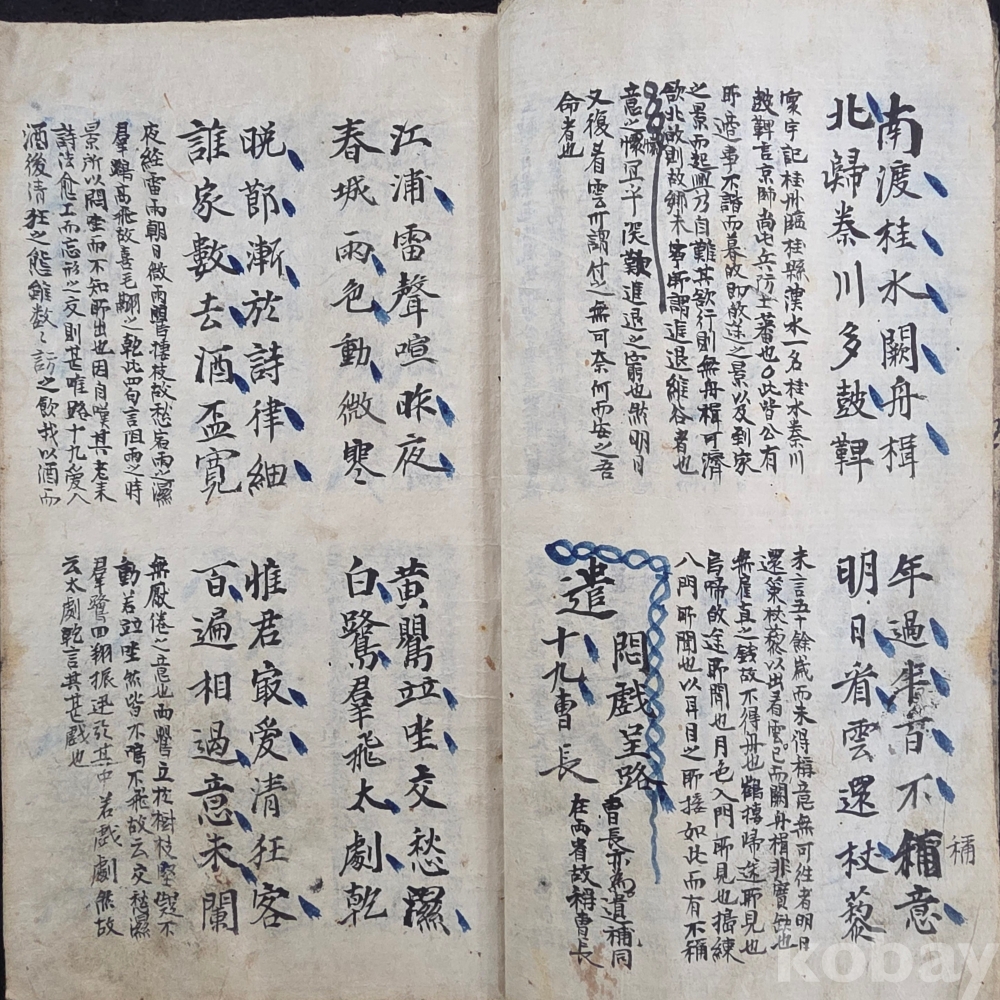 南渡桂水闕舟楫
北歸秦川多鼓鞞
寰宇記桂州臨桂縣漓水一名桂水秦川
鼓鞞言京師尚屯兵防土蕃也○此皆公有
所遣事不諧而暮故即故途之景以及到家
之景而起興乃自難其欲行則無舟楫可濟
欲北故則故鄉未寧所謂進退維谷者也
年過半百不稱意
稱
明日看雲還杖藜
末言五十餘歲而未得稱意無可往者明日
還策杖藜以出看雲已而闕舟楫非實缺也
無雇直之錢故不得舟也鶴棲歸途所見也
烏啼故途所聞也月色入門所見也擣練
八門所聞也以耳目之所接如此而有不稱
意之懷冝乎深歎進退之窮也然明日
又復看雲所謂付之無可奈何而安之吾
命者也
遣悶戲呈路
十九曹長
曹長亦為遺補同
在両省故稱曹長
江浦雷聲喧昨夜
春城雨色動微寒
黃鸎竝坐交愁濕
白鷺羣飛太劇乾
晚節漸於詩律細
誰家數去酒盃寬
惟君最愛清狂客
百遍相過意未闌
夜經雷雨朝日微雨鸎棲枝故愁宿雨之濕
羣鷺高飛故喜毛翮之乾此四句言阻雨之時
景所以悶坐而不知所出也因自嘆其老來
詩法愈工而忘形之交則甚唯路十九愛人
酒後清狂之態雖數〻訪之飲我以酒而
無厭倦之意也両鸎立於樹枝堅凝不
動若竝坐然皆不鳴不飛故云交愁濕
羣鷺四翔振迅於其中若戲劇無故
云太劇乾言其甚戲也
kobay